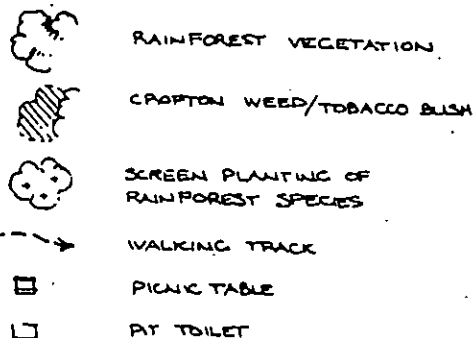 RAINFOREST VEGETATION
CROFTON WEED/TOBACCO BUSH
SCREEN PLANTING OF
RAINFOREST SPECIES
WALKING TRACK
PICNIC TABLE
PIT TOILET